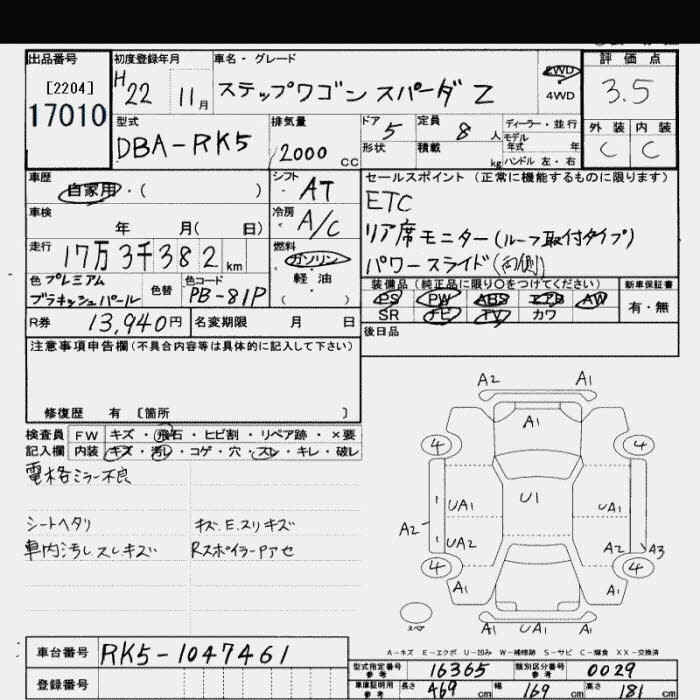 出品番号 初度登録年月 車名・グレード 2WD 評価点
[2204] H22 11月 ステップワゴン スパーダ Z 4WD 3.5
17010
型式 排気量 ドア 5 定員 8人 ディーラー・並行 外装 内装
DBA-RK5 2000CC 形状 積載 kg モデル年式 年 C C
ハンドル 左・右
車歴 シフト セールスポイント(正常に機能するものに限ります)
自家用・( ) AT ETC
車検 年 月( 日) 冷房 A/C リア席モニター(ルーフ取付タイプ)
走行 17万3千382km 燃料 ガソリン パワースライド(両側)
色 プレミアム 色替 色コード 軽油 装備品(純正品に限り○をつけてください) 新車保証書
ブラキッシュパール PB-81P ( ) PS PW ABS エアB AW 有・無
SR ナビ TV カワ
R券 13,940円 名変期限 月 日 後日品
注意事項申告欄(不具合内容等は具体的に記入して下さい)
修復歴 有 [箇所 ]
検査員 FW キズ・飛石・ヒビ割・リペア跡・×要
記入欄 内装 キズ・汚レ・コゲ・穴・スレ・キレ・破レ
電格ミラー不良
シートヘタリ キズ.E.スリキズ
車内汚レスレキズ RスポイラーPアセ
A2 A1
A1
4 4
UA1 U1 UA1
A2 UA2 A2 A3
4 4
A1 A1
UA1 A2
A-キズ E-エクボ U-凹み W-補修跡 S-サビ C-腐食 XX-交換済
車台番号 RK5-1047461 型式指定番号 参考 16365 類別区分番号 参考 0029
登録番号 車庫証明用 参考 長さ 469cm 幅 169cm 高さ 181cm